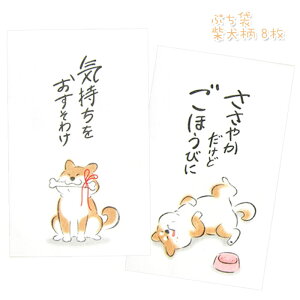 ぷち袋
柴犬柄8枚
気持ちを
おすそわけ
ささやか
だけど
ごほうびに